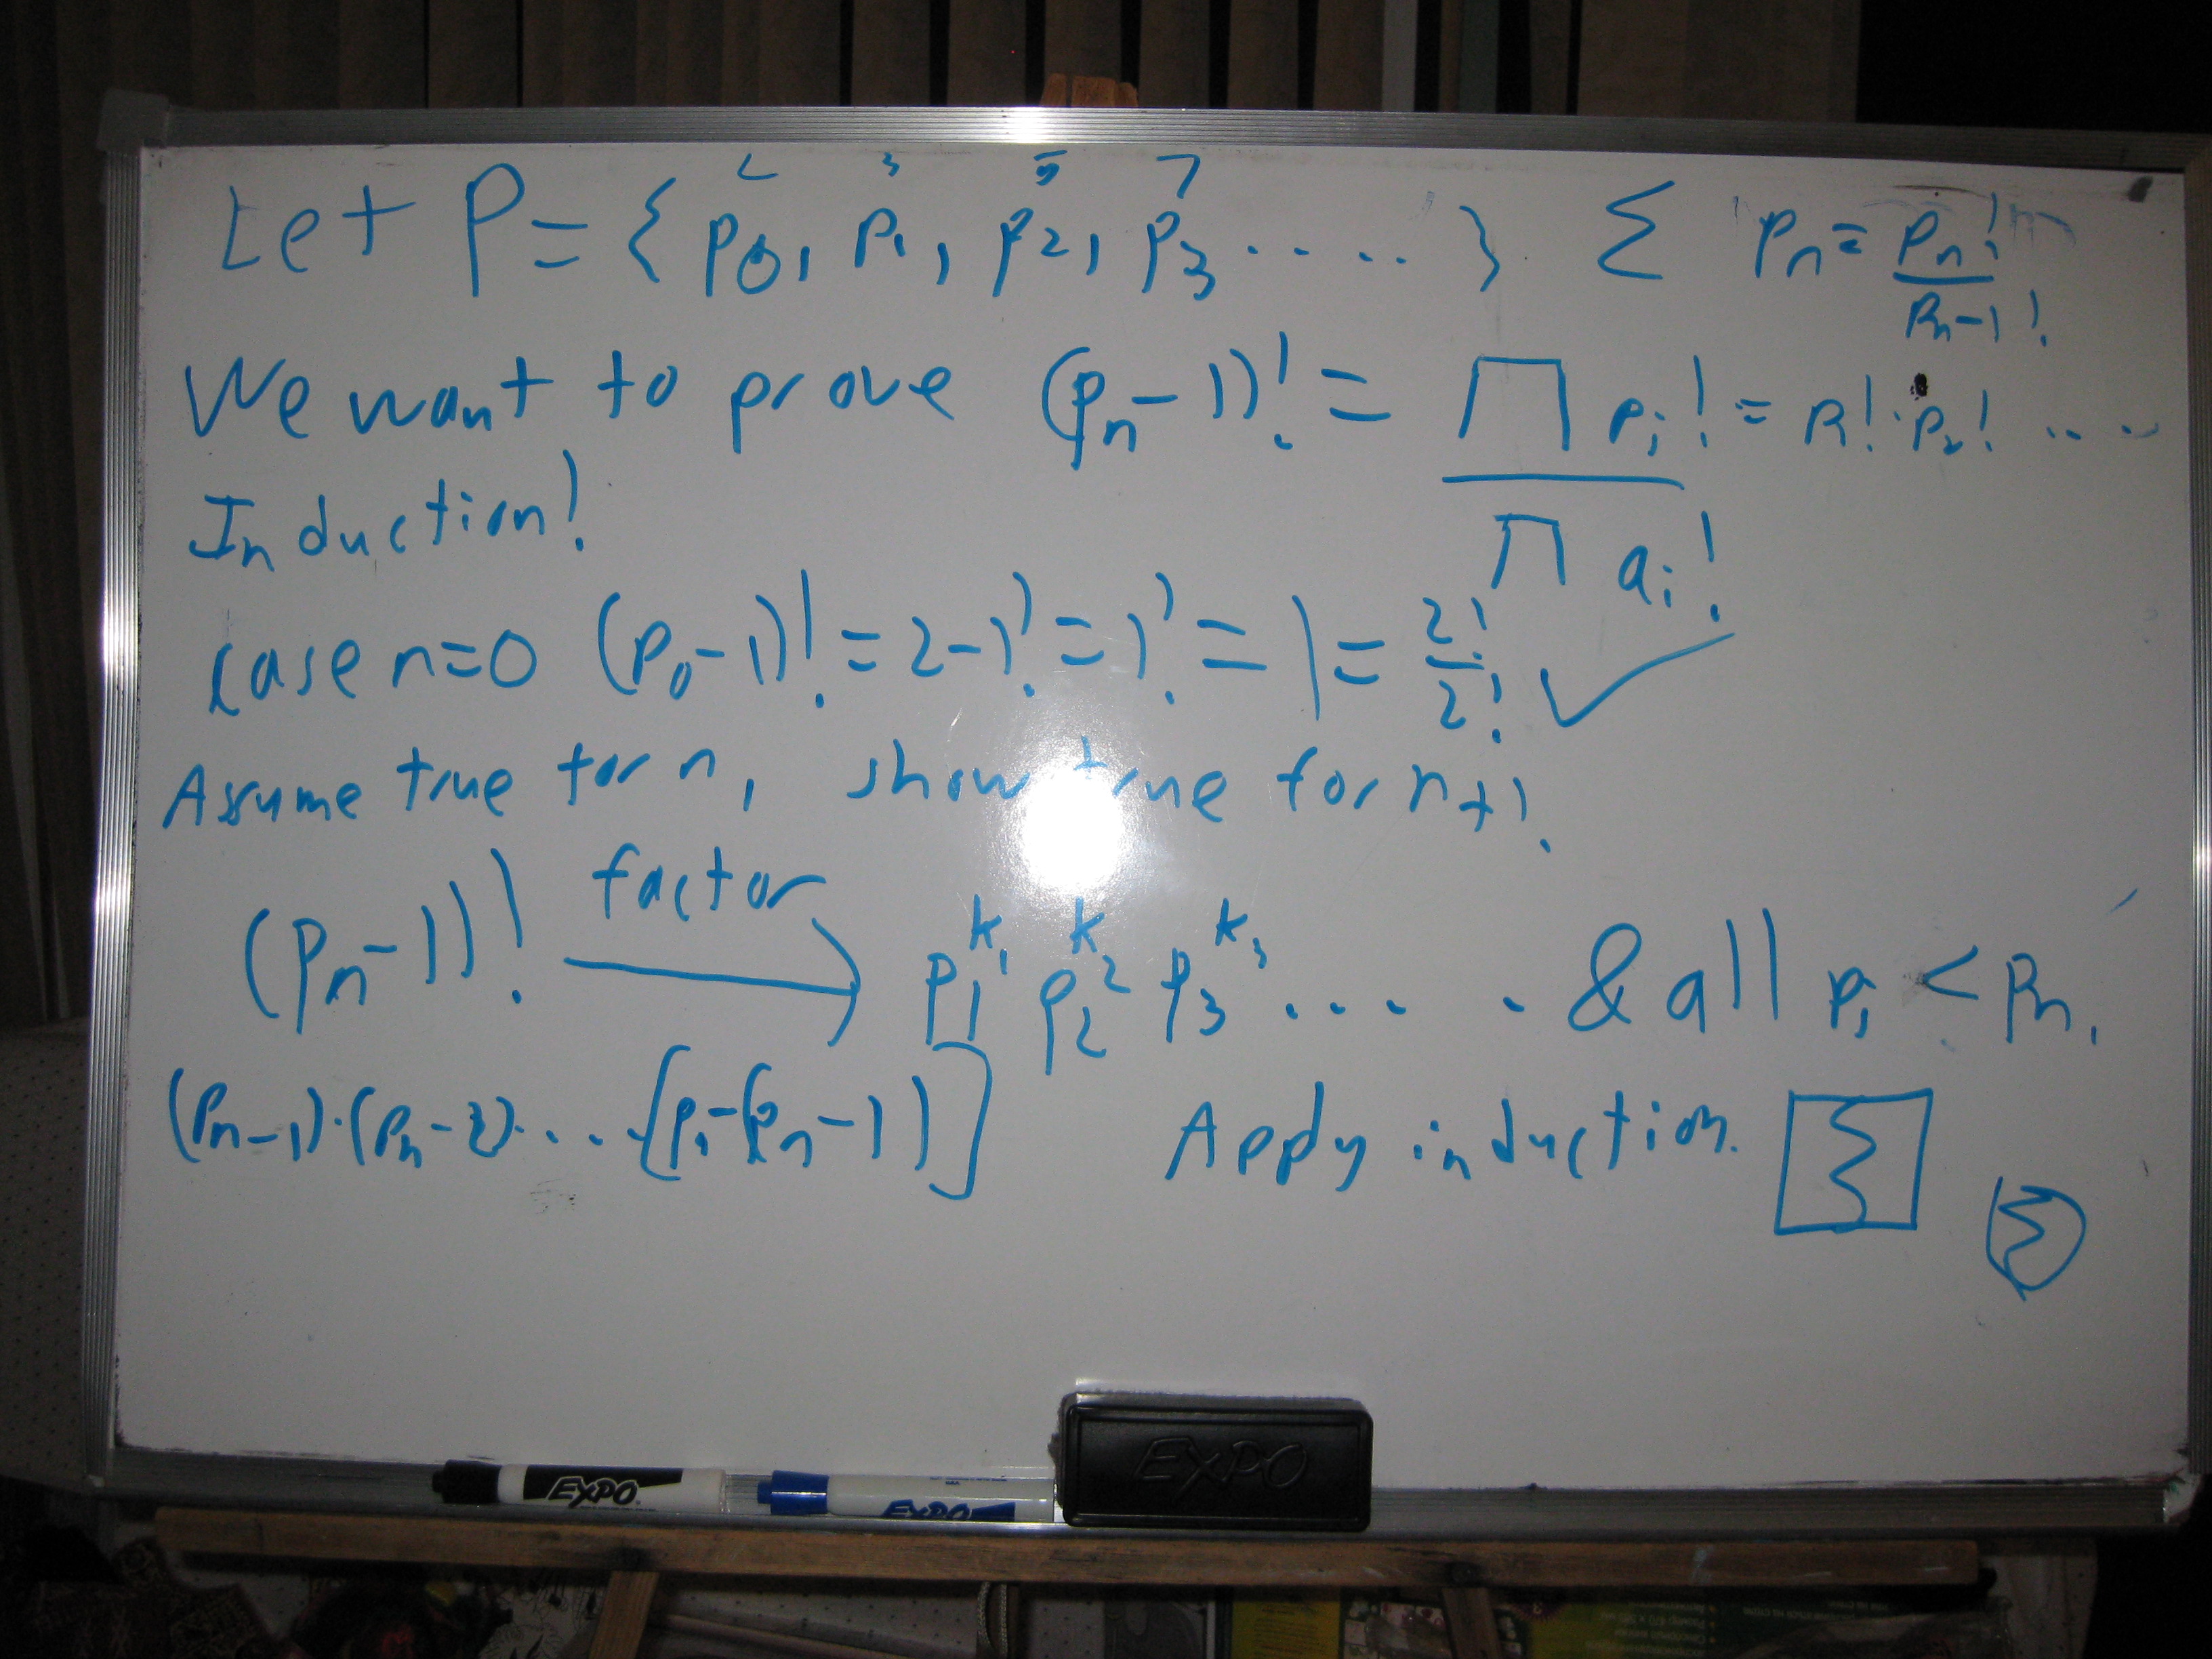 2 3 5 7
Let P = { p₀, p₁, p₂, p₃ ..... } Σ pₙ = pₙ! / pₙ-1!
We want to prove (pₙ-1)! = ∏ pᵢ! / ∏ aᵢ! = p₁! · p₂! ...
Induction!
Case n=0 (p₀-1)! = 2-1! = 1! = 1 = 2!/2! ✓
Assume true for n, show true for n+1.
(pₙ-1)! factor → p₁^k₁ p₂^k₂ p₃^k₃ .... & all pᵢ < pₙ.
(pₙ-1)·(pₙ-2)·...·[pₙ-(pₙ-1)] Apply induction.
EXPO
EXPO
EXPO